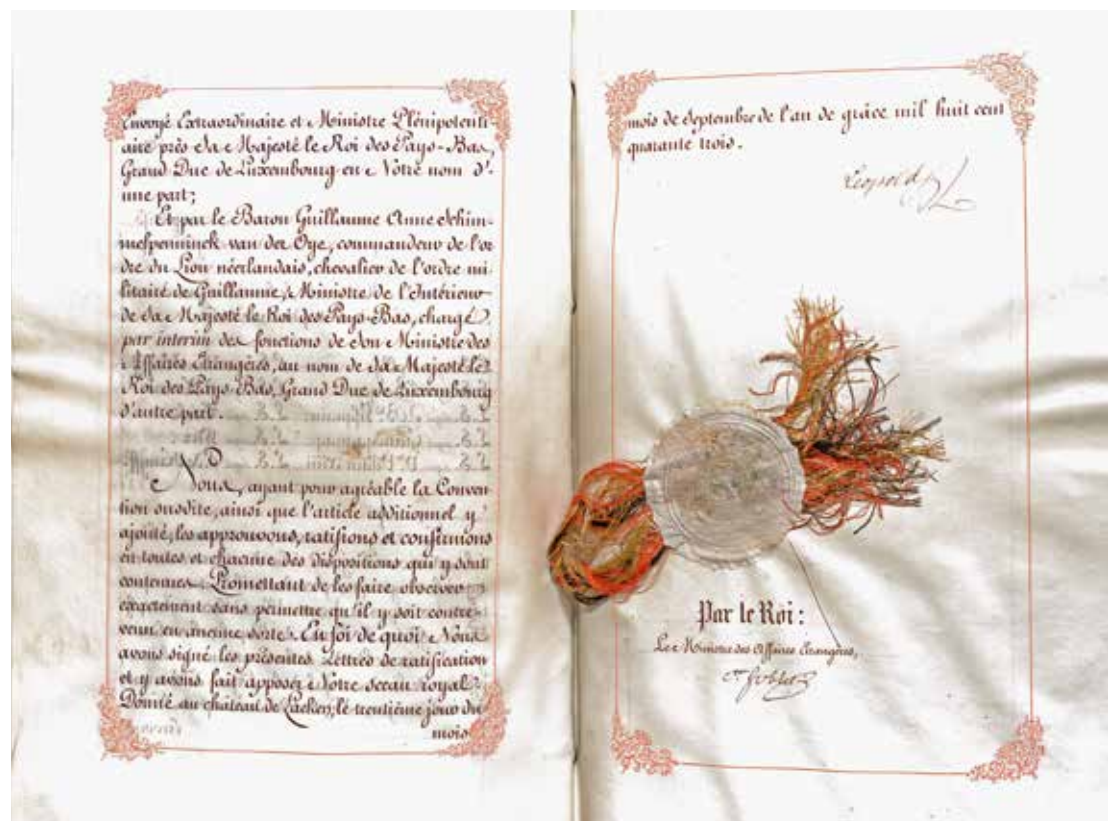 Envoyé Extraordinaire et Ministre Plénipotenti
aire près Sa Majesté le Roi des Pays-Bas,
Grand Duc de Luxembourg en Notre nom d'
une part;
Et par le Baron Guillaume Anne Schim-
melpenninck van der Oye, commandeur de l'or
dre du Lion néerlandais, chevalier de l'ordre mi
litaire de Guillaume, Ministre de l'Intérieur
de Sa Majesté le Roi des Pays-Bas, chargé
par interim des fonctions de Son Ministre des
Affaires Etrangères, au nom de Sa Majesté le
Roi des Pays-Bas, Grand Duc de Luxembourg
d'autre part.
Nous, ayant pour agréable la Conven
tion susdite, ainsi que l'article additionnel y
ajouté, les approuvons, ratifions et confirmons
en toutes et chacune des dispositions qui y sont
contenues. Promettant de les faire observer
exactement sans permettre qu'il y soit contre-
venu en aucune sorte. En foi de quoi Nous
avons signé les présentes Lettres de ratification
et y avons fait apposer Notre sceau royal.
Donné au château de Laeken, le trentième jour du
mois
mois de Septembre de l'an de grâce mil huit cent
quarante trois.
Leopold
Par le Roi:
Le Ministre des Affaires Etrangères,
Cte Goblet